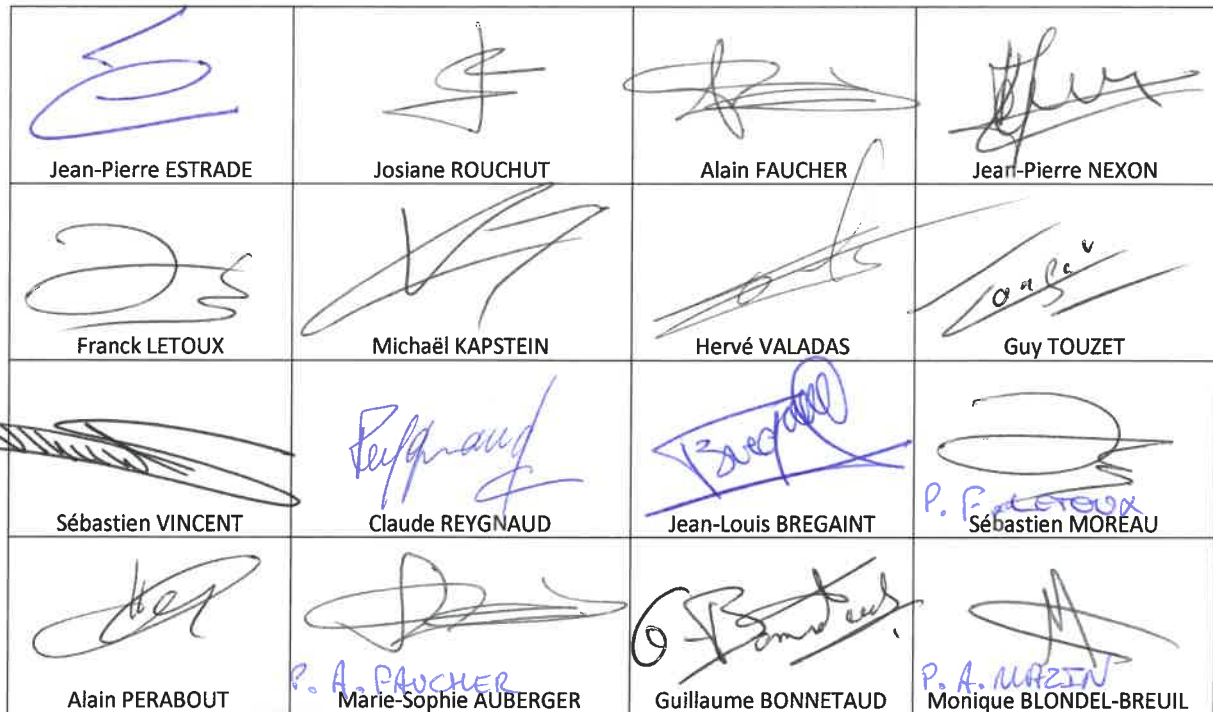 Jean-Pierre ESTRADE
Josiane ROUCHUT
Alain FAUCHER
Jean-Pierre NEXON
Franck LETOUX
Michaël KAPSTEIN
Hervé VALADAS
Guy TOUZET
Reygnaud
Sébastien VINCENT
Claude REYGNAUD
Jean-Louis BREGAINT
P. F. LETOUX
Sébastien MOREAU
Alain PERABOUT
P. A. FAUCHER
Marie-Sophie AUBERGER
Guillaume BONNETAUD
P. A. MAZIN
Monique BLONDEL-BREUIL